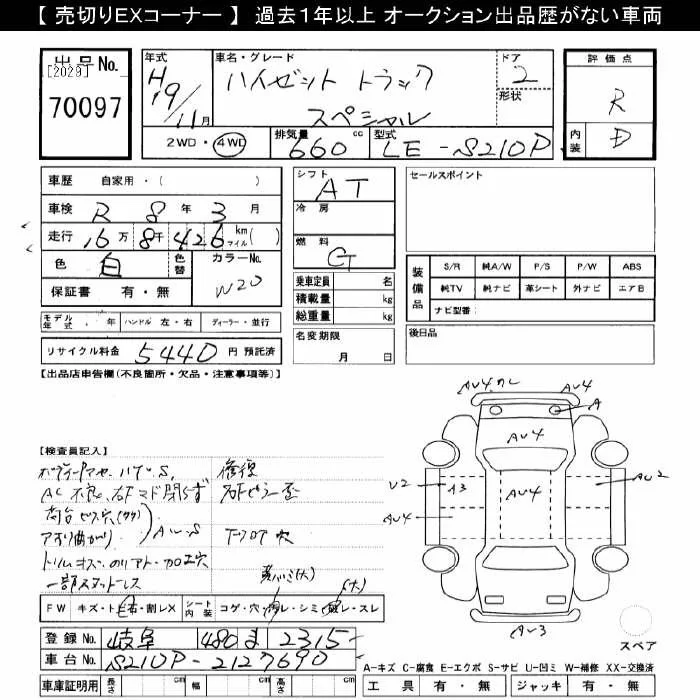 【 売切りEXコーナー 】 過去1年以上 オークション出品歴がない車両
出品No.
[2029]
70097
年式 H19 11月
車名・グレード ハイゼット トラック スペシャル
ドア 2
形状
2WD・4WD
排気量 660 cc
型式 LE-S210P
評価点 R
内装 D
車歴 自家用・( )
車検 R 8年 3月
走行 16万 8千 426 km マイル ( )
色 白 色替 カラーNo. W20
保証書 有・無
モデル年式 . 年 ハンドル 左・右 ディーラー・並行
リサイクル料金 5440 円 預託済
シフト AT
冷房
燃料 G
乗車定員 名
積載量 kg
総重量 kg
名変期限 月 日
セールスポイント
装備品 S/R 純A/W P/S P/W ABS
純TV 純ナビ 革シート 外ナビ エアB
ナビ型番:
後日品
【出品店申告欄(不良箇所・欠品・注意事項等)】
【検査員記入】
修復
AC 不良、右Fマド閉らず
荷台 ビス穴
アオリ曲がり
AU-S
Fフロア 穴
加工穴
一部スタッドレス
黄バミ(大)
(大)
FW キズ・ト石・割レX
シート内装 コゲ・穴・切レ・シミ・破レ・スレ
登録No. 岐阜 480 ま 2315
車台No. S210P-2127690
車庫証明用 長さ cm 幅 cm 高さ cm
AU4
AU4
A
AU4
U2
A3
AU4
AU2
AU4
AU3
スペア
A-キズ C-腐食 E-エクボ S-サビ U-凹ミ W-補修 XX-交換済
工具 有・無 ジャッキ 有・無